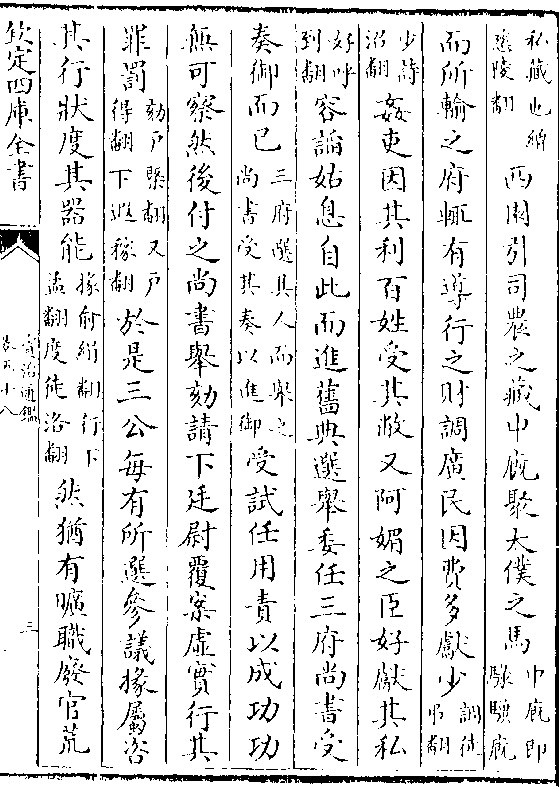 私藏也繒
慈陵翻
西園引司農之藏中廐聚太僕之馬
中廐即
騄驥廐
而所輸之府輒有導行之財調廣民困費多獻少
調徒
弔翻
少詩
沼翻
姦吏因其利百姓受其敝又阿媚之臣好獻其私
好呼
到翻
容諂姑息自此而進舊典選舉委任三府尚書受
奏御而已
三府選其人而舉之
尚書受其奏以進御
受試任用責以成功功
無可察然後付之尚書舉劾請下廷尉覆案虛實行其
罪罰
劾戶槩翻又戶
得翻下遐稼翻
於是三公每有所選參議掾屬咨
其行狀度其器能
掾俞絹翻行下
孟翻度徒洛翻
然猶有曠職廢官荒
欽定四庫全書
資治通鑑
卷五十八
三